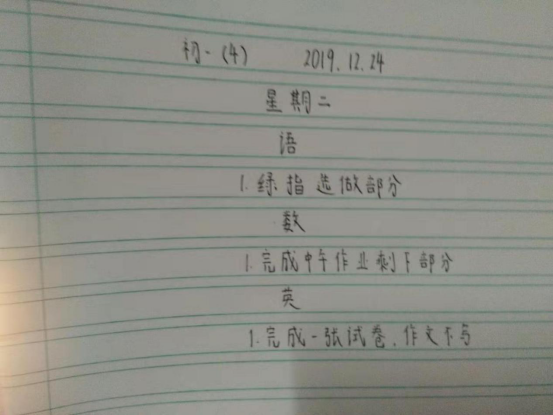 初一(4) 2019.12.24
星期二
语
1.绿指选做部分
数
1.完成中午作业剩下部分
英
1.完成一张试卷、作文不写